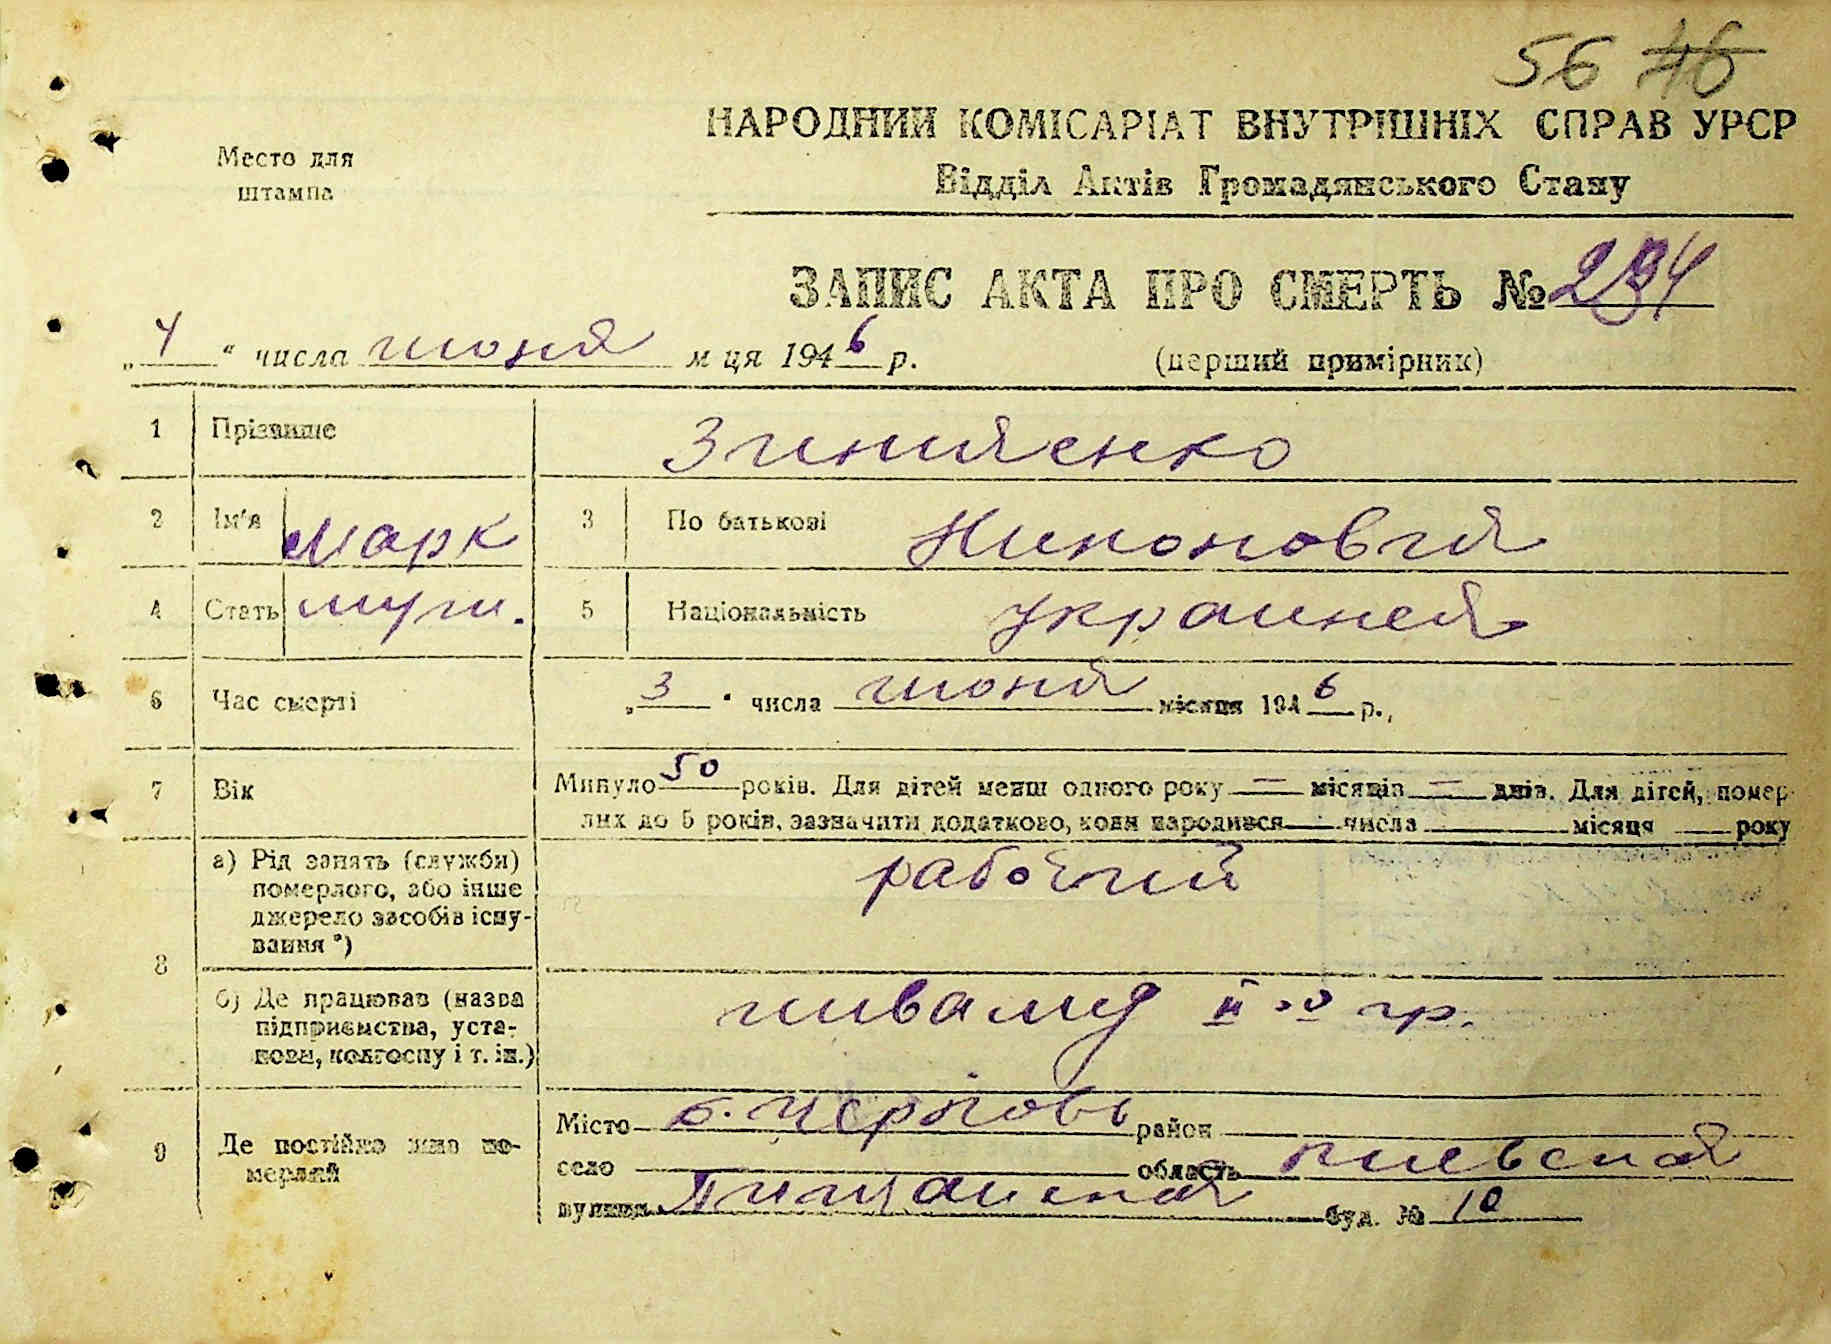 56 46
НАРОДНИЙ КОМІСАРІАТ ВНУТРІШНІХ СПРАВ УРСР
Место для
штампа
Відділ Актів Громадянського Стану
ЗАПИС АКТА ПРО СМЕРТЬ № 234
„4“ числа июня м ця 1946 р. (перший примірник)
1 Прізвище Зинияенко
2 Ім'я Марк 3 По батькові Никонович
4 Стать муж. 5 Національність украинец
6 Час смерті „3“ числа июня місяця 1946 р.,
7 Вік Минуло 50 років. Для дітей менш одного року — місяців — днів. Для дітей, помер-
лих до 5 років, зазначити додатково, коли народився числа місяця року
8 а) Рід занять (служби)
померлого, або інше
джерело засобів існу-
вання *)
рабочий
б) Де працював (назва
підприємства, уста-
нови, колгоспу і т. ін.)
инвалид II-й гр.
9 Де постійно жив по-
мерлий
Місто б. Церковь район
село область Киевская
вулиця Пищанская буд. № 10